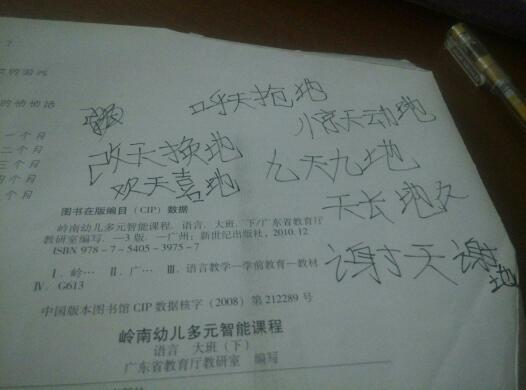 一个月
二个月
三个月
四个月
个月
呼天抢地
惊天动地
改天换地
九天九地
欢天喜地
天长地久
谢天谢地
图书在版编目(CIP)数据
岭南幼儿多元智能课程. 语言. 大班. 下/广东省教育厅
教研室编写. —3版. —广州:新世纪出版社, 2010.12
ISBN 978-7-5405-3975-7
Ⅰ. 岭… Ⅱ. 广… Ⅲ. 语言教学—学前教育—教材
Ⅳ. G613
中国版本图书馆CIP数据核字(2008)第212289号
岭南幼儿多元智能课程
语言 大班(下)
广东省教育厅教研室 编写